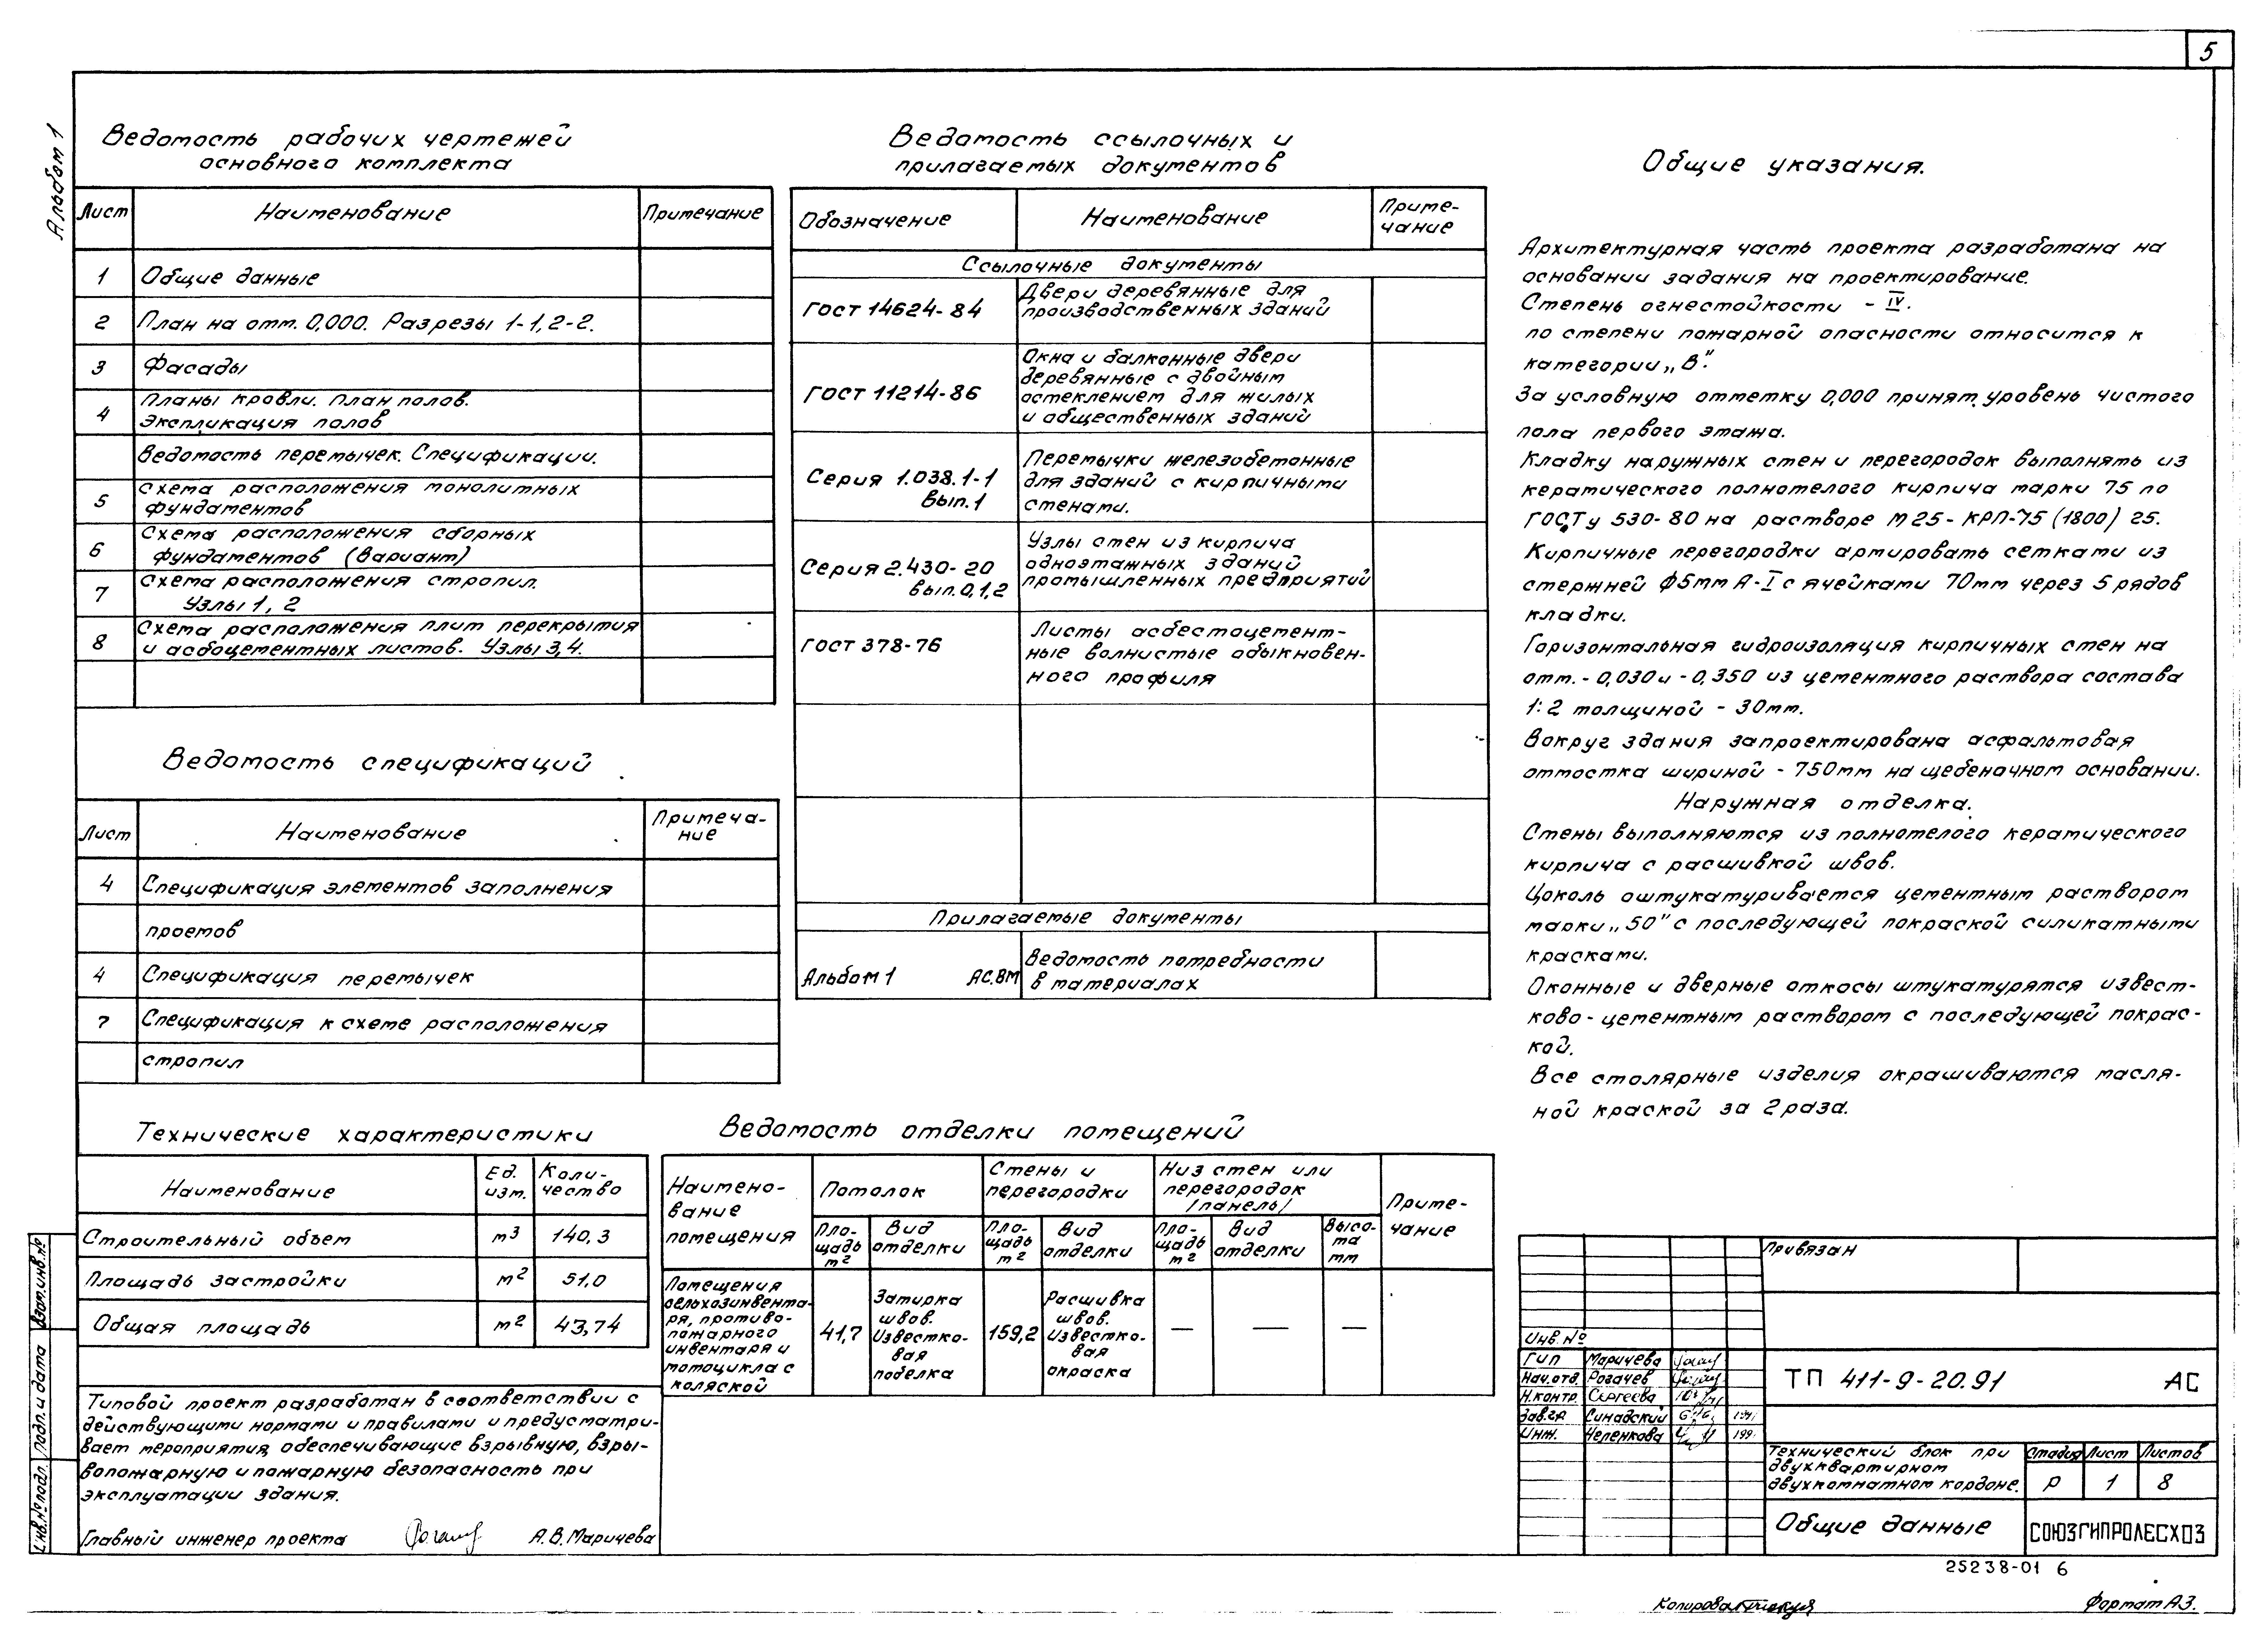 5
Альбом 1
Ведомость рабочих чертежей
основного комплекта
Лист Наименование Примечание
1 Общие данные
2 План на отм. 0,000. Разрезы 1-1, 2-2.
3 Фасады
4 Планы кровли. План полов.
Экспликация полов
Ведомость перемычек. Спецификации.
5 Схема расположения монолитных
фундаментов
6 Схема расположения сборных
фундаментов (вариант)
7 Схема расположения стропил.
Узлы 1, 2
8 Схема расположения плит перекрытия
и асбоцементных листов. Узлы 3,4.
Ведомость спецификаций
Лист Наименование Примеча-
ние
4 Спецификация элементов заполнения
проемов
4 Спецификация перемычек
7 Спецификация к схеме расположения
стропил
Технические характеристики
Наименование Ед. изм. Коли-
чество
Строительный объем м³ 140,3
Площадь застройки м² 51,0
Общая площадь м² 43,74
Типовой проект разработан в соответствии с
действующими нормами и правилами и предусматри-
вает мероприятия, обеспечивающие взрывную, взры-
вопожарную и пожарную безопасность при
эксплуатации здания.
Главный инженер проекта А.В. Маричева
Ведомость ссылочных и
прилагаемых документов
Обозначение Наименование Приме-
чание
Ссылочные документы
ГОСТ 14624-84 Двери деревянные для
производственных зданий
ГОСТ 11214-86 Окна и балконные двери
деревянные с двойным
остеклением для жилых
и общественных зданий
Серия 1.038.1-1 Перемычки железобетонные
для зданий с кирпичными
вып. 1 стенами.
Серия 2.430-20 Узлы стен из кирпича
одноэтажных зданий
вып. 0,1,2 промышленных предприятий
ГОСТ 378-76 Листы асбестоцемент-
ные волнистые обыкновен-
ного профиля
Прилагаемые документы
Альбом 1 АС.ВМ Ведомость потребности
в материалах
Ведомость отделки помещений
Наимено-
вание
помещения
Потолок
Стены и
перегородки
Низ стен или
перегородок
/панель/
Приме-
чание
Пло-
щадь
м²
Вид
отделки
Пло-
щадь
м²
Вид
отделки
Пло-
щадь
м²
Вид
отделки
Высо-
та
мм
Помещения
сельхозинвента-
ря, противо-
пожарного
инвентаря и
мотоцикла с
коляской
41,7
Затирка
швов.
Известко-
вая
побелка
159,2
Расшивка
швов.
Известко-
вая
окраска
— — —
Общие указания.
Архитектурная часть проекта разработана на
основании задания на проектирование.
Степень огнестойкости - IV.
по степени пожарной опасности относится к
категории „В".
За условную отметку 0,000 принят уровень чистого
пола первого этажа.
Кладку наружных стен и перегородок выполнять из
керамического полнотелого кирпича марки 75 по
ГОСТу 530-80 на растворе М25 - КРП-75 (1800) 25.
Кирпичные перегородки армировать сетками из
стержней ф5мм А-I с ячейками 70мм через 5 рядов
кладки.
Горизонтальная гидроизоляция кирпичных стен на
отм. - 0,030 и - 0,350 из цементного раствора состава
1:2 толщиной - 30мм.
Вокруг здания запроектирована асфальтовая
отмостка шириной - 750мм на щебеночном основании.
Наружная отделка.
Стены выполняются из полнотелого керамического
кирпича с расшивкой швов.
Цоколь оштукатуривается цементным раствором
марки „50" с последующей покраской силикатными
красками.
Оконные и дверные откосы штукатурятся извест-
ково-цементным раствором с последующей покрас-
кой.
Все столярные изделия окрашиваются масля-
ной краской за 2 раза.
Привязан
Инв. №
ГИП Маричева
Нач.отд. Рогачев
Н.контр. Сергеева
Зав.гр. Синадский
Инж. Челенкова
ТП 411-9-20.91 АС
Технический блок при
двухквартирном
двухкомнатном кордоне.
Стадия Лист Листов
Р 1 8
Общие данные
СОЮЗГИПРОЛЕСХОЗ
25238-01 6
Копировал
Формат А3.
Инв. № подл. Подп. и дата Взам. инв. №